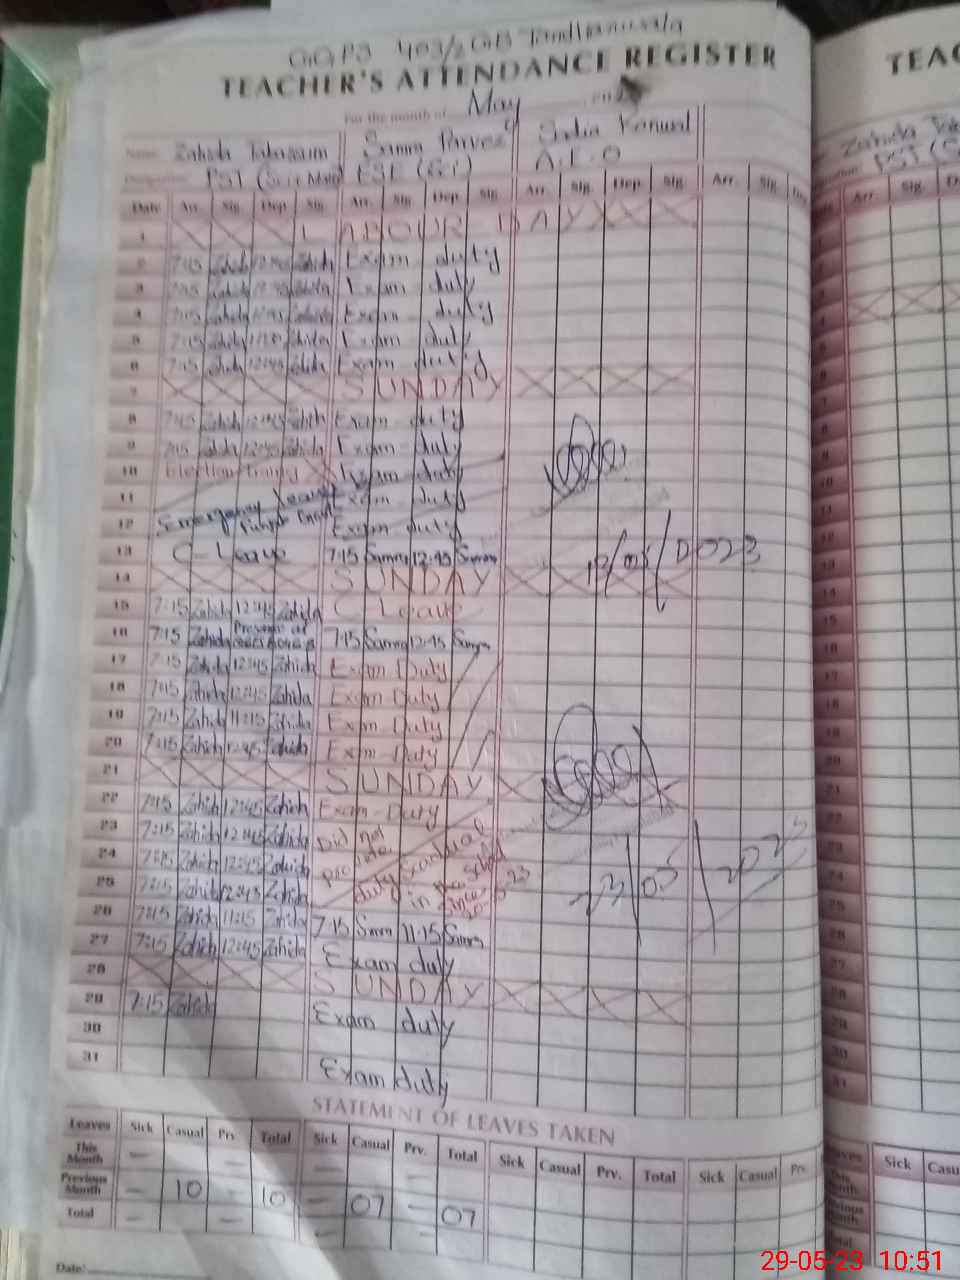 GGPS 403/2 GB Tandlianwala
TEACHER'S ATTENDANCE REGISTER
TEAC
For the month of May
Name Zahida Tabassum Samra Parvez Shalia Kanwal
Zahida
PST ESE A.E.O
Date Arr. Sig. Dep. Sig. Arr. Sig. Dep. Sig. Arr. Sig. Dep. Sig. Arr. Sig. Arr. Sig. D
1 LABOUR DAY
2 7:15 Zahida 12:45 Zahida Exam duty
3 7:15 Zahida 12:45 Zahida Exam duty
4 7:15 Zahida Zahida Exam duty
5 7:15 Zahida Zahida Exam duty
6 7:15 Zahida 12:45 Zahida Exam duty
7 SUNDAY
8 7:15 Zahida 12:45 Zahida Exam duty
9 7:15 Zahida 12:45 Zahida Exam duty
10 Election Exam duty
11 Emergency Leave Exam duty
12 Punjab Exam duty
13 C-Leave 7:15 Samra 12:45 Samra /05/2023
14 SUNDAY
15 7:15 Zahida 12:45 Zahida C Leave
16 7:15 Zahida Present at 7:15 Samra 12:45 Samra
17 7:15 Zahida 12:45 Zahida Exam Duty
18 7:15 Zahida 12:45 Zahida Exam Duty
19 7:15 Zahida 11:15 Zahida Exam Duty
20 7:15 Zahida 12:45 Zahida Exam Duty
21 SUNDAY
22 7:15 Zahida 12:45 Zahida Exam-Duty
23 7:15 Zahida 12:45 Zahida Did not
24 7:15 Zahida 12:45 Zahida provide
duty schedule
25 7:15 Zahida 12:45 Zahida in the school
since
23/05/2023
26 7:15 Zahida 11:15 Zahida 7:15 Samra 11:15 Samra
27 7:15 Zahida 12:45 Zahida Exam duty
28 SUNDAY
29 7:15 Zahida Exam duty
30
31 Exam duty
STATEMENT OF LEAVES TAKEN
Leaves Sick Casual Prv. Total Sick Casual Prv. Total Sick Casual Prv. Total Sick Casual Prv. Sick Casu
This Month — — — —
Previous Month — 10 — 10 — 07 — 07
Total — — — —
Date:
29-05-23 10:51